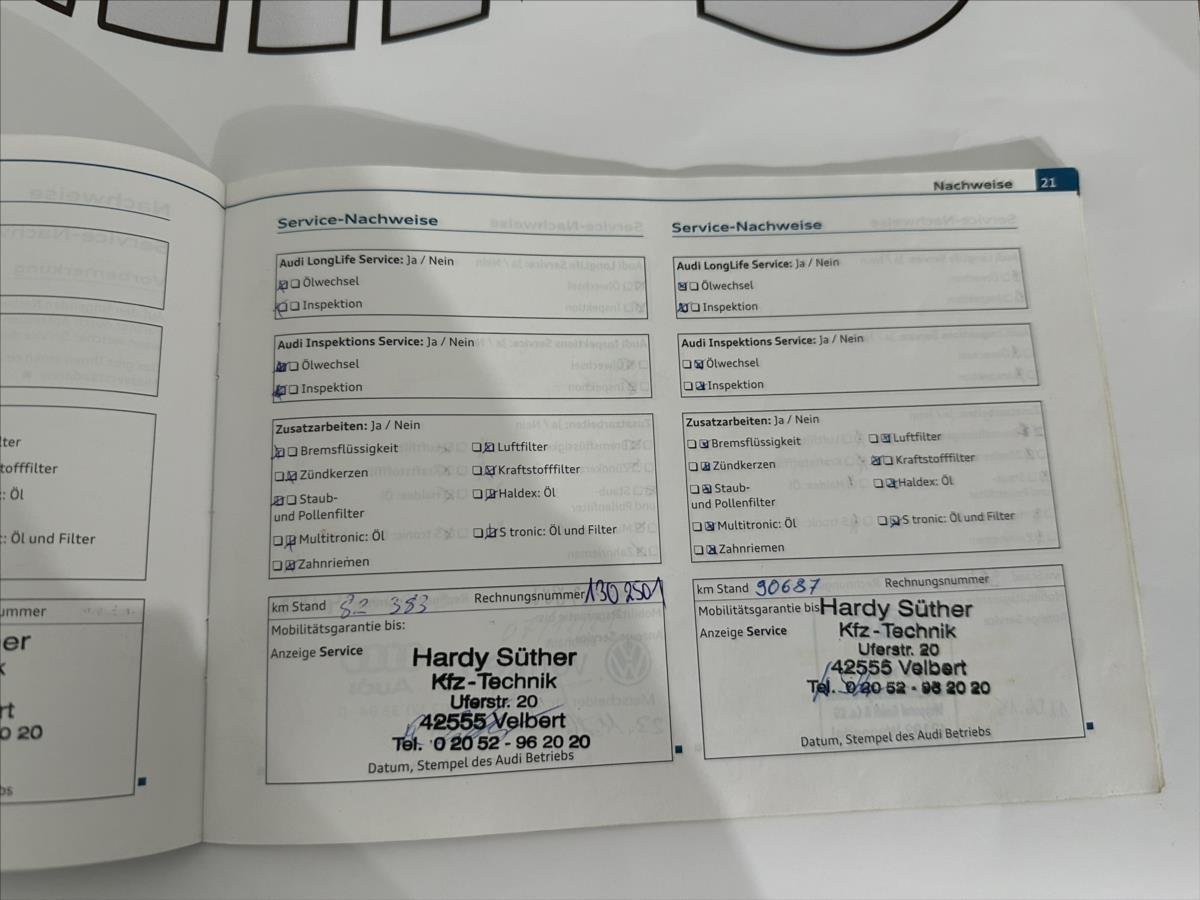 Nachweise 21
Service-Nachweise
Audi LongLife Service: Ja / Nein
Ölwechsel
Inspektion
Audi Inspektions Service: Ja / Nein
Ölwechsel
Inspektion
Zusatzarbeiten: Ja / Nein
Bremsflüssigkeit
Zündkerzen
Staub-
und Pollenfilter
Multitronic: Öl
Zahnriemen
Luftfilter
Kraftstofffilter
Haldex: Öl
S tronic: Öl und Filter
km Stand 82 383 Rechnungsnummer 130 8501
Mobilitätsgarantie bis:
Anzeige Service
Hardy Süther
Kfz-Technik
Uferstr. 20
42555 Velbert
Tel. 0 20 52 - 96 20 20
Datum, Stempel des Audi Betriebs
Service-Nachweise
Audi LongLife Service: Ja / Nein
Ölwechsel
Inspektion
Audi Inspektions Service: Ja / Nein
Ölwechsel
Inspektion
Zusatzarbeiten: Ja / Nein
Bremsflüssigkeit
Zündkerzen
Staub-
und Pollenfilter
Multitronic: Öl
Zahnriemen
Luftfilter
Kraftstofffilter
Haldex: Öl
S tronic: Öl und Filter
km Stand 90687 Rechnungsnummer
Mobilitätsgarantie bis
Anzeige Service
Hardy Süther
Kfz-Technik
Uferstr. 20
42555 Velbert
Tel. 0 20 52 - 96 20 20
Datum, Stempel des Audi Betriebs